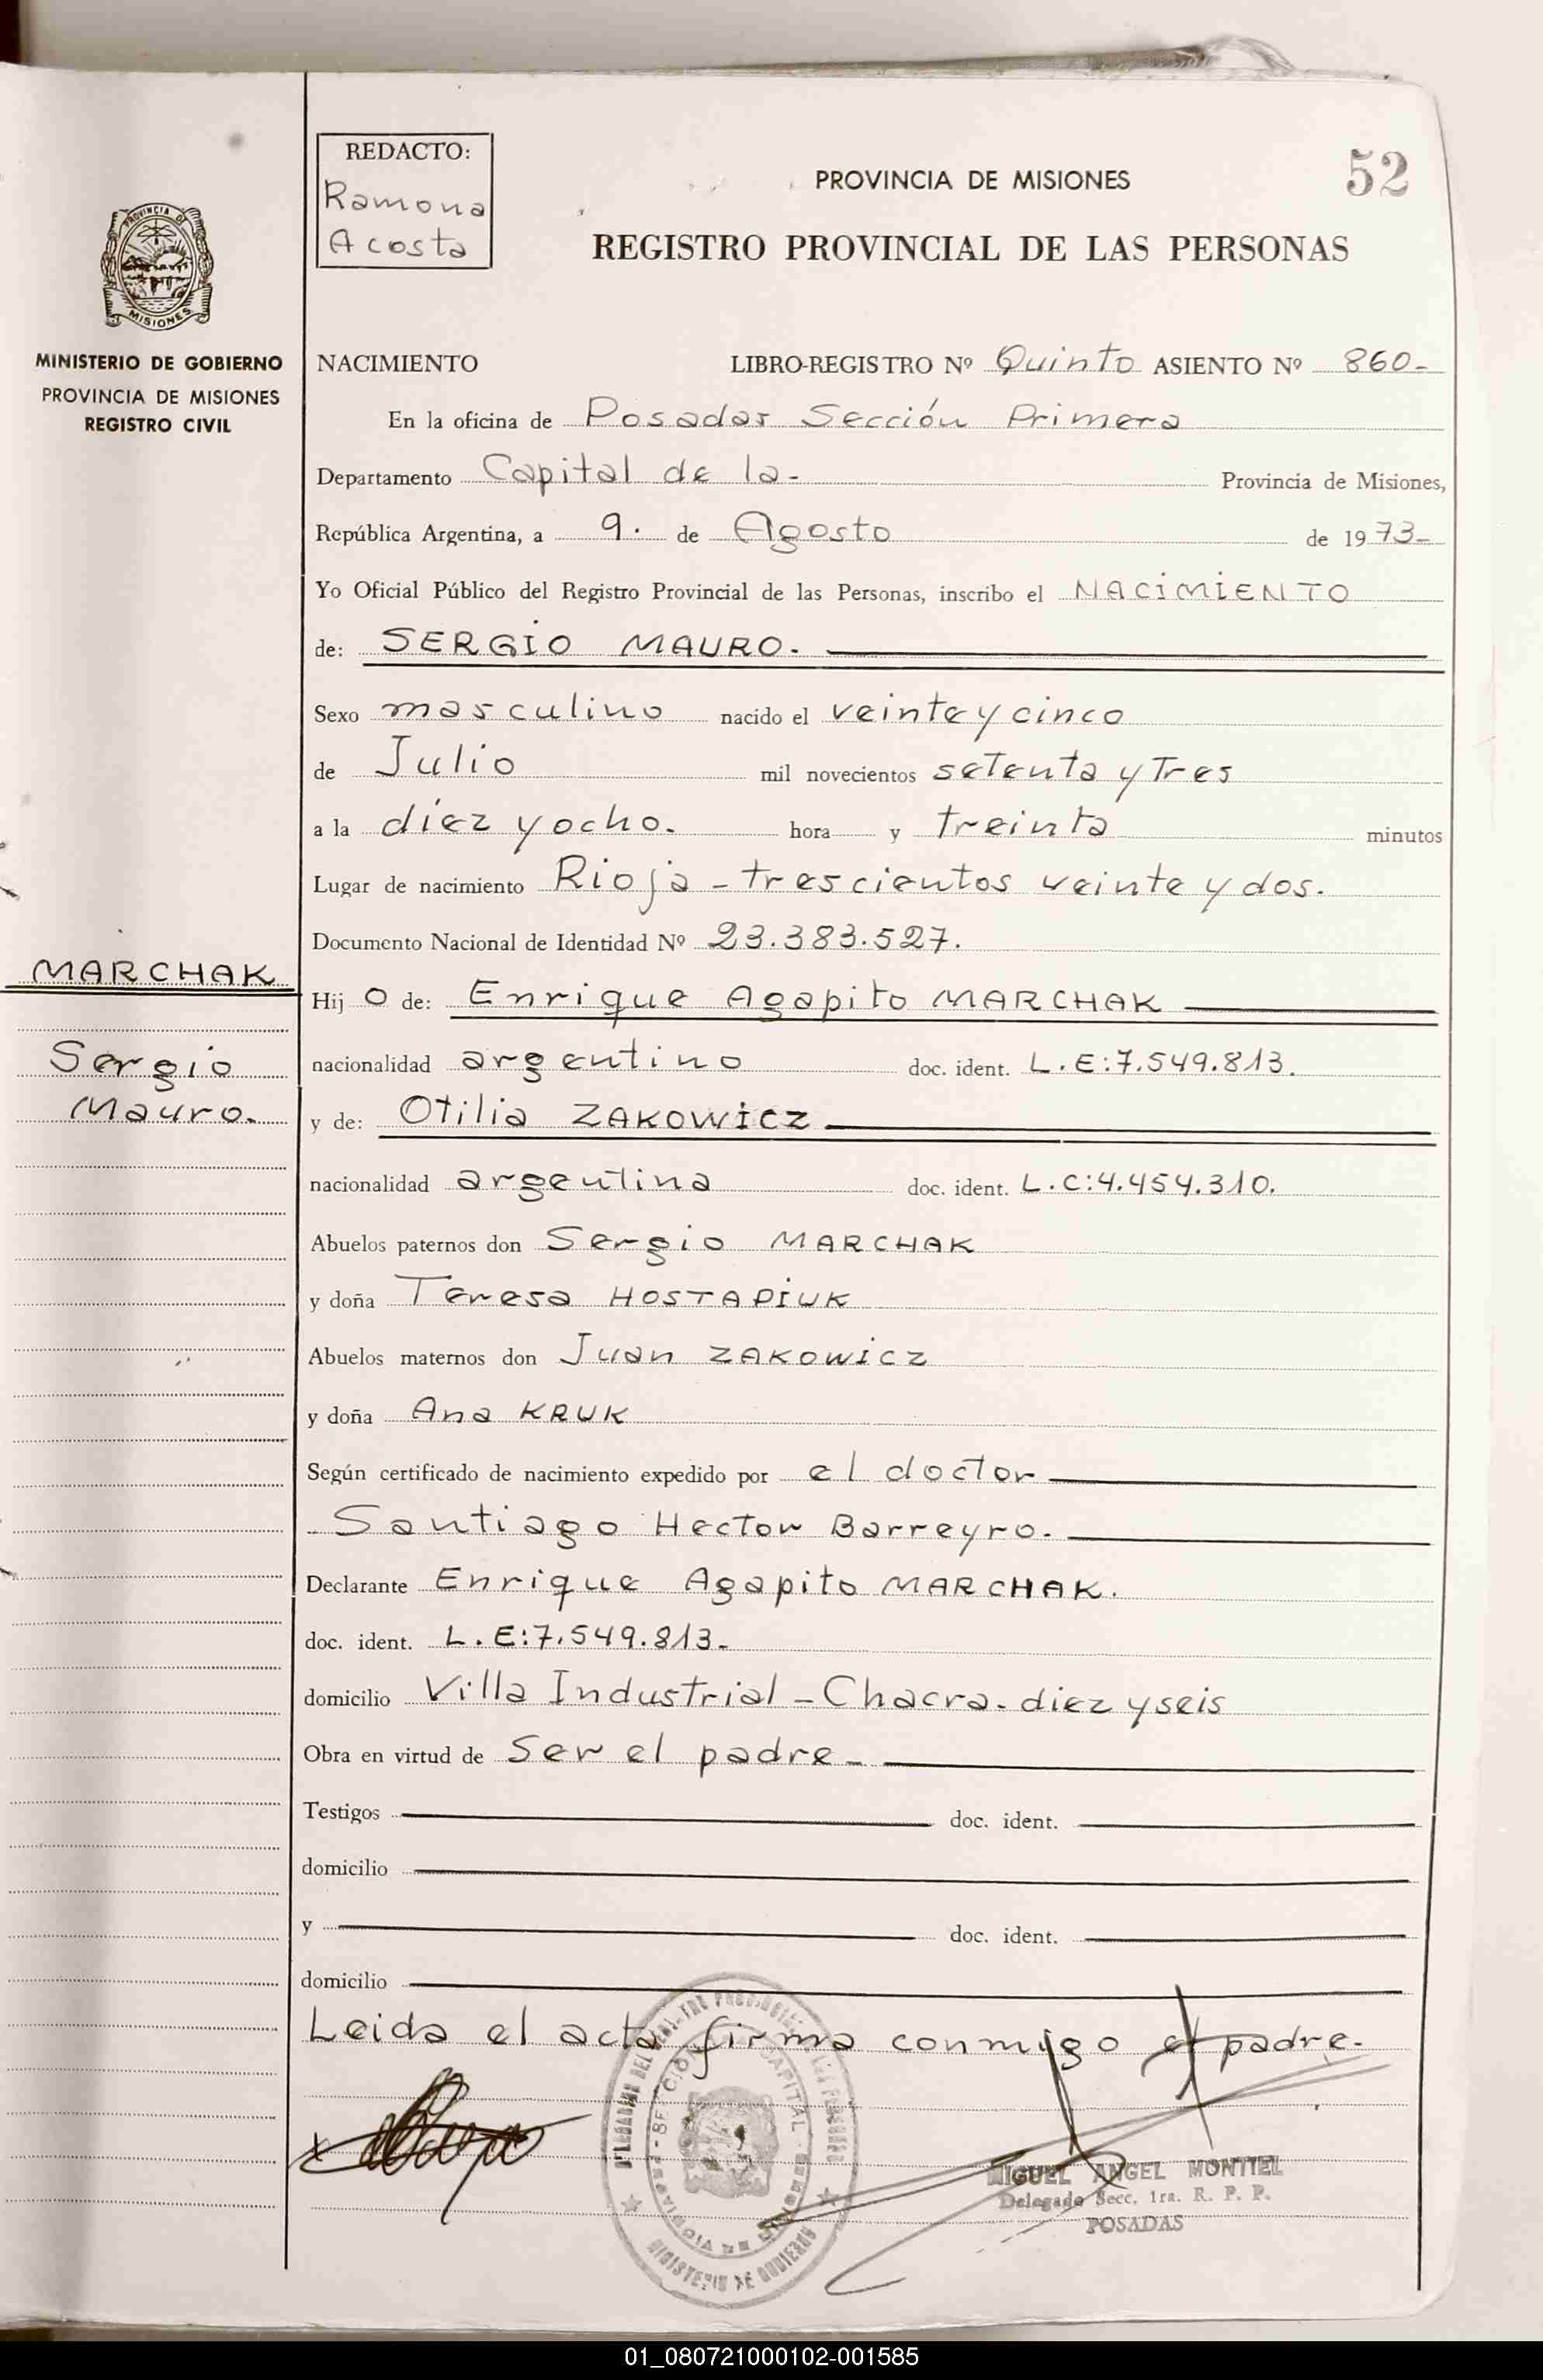 REDACTO:
Ramona
Acosta
52
PROVINCIA DE MISIONES
REGISTRO PROVINCIAL DE LAS PERSONAS
PROVINCIA DE
MISIONES
MINISTERIO DE GOBIERNO
PROVINCIA DE MISIONES
REGISTRO CIVIL
NACIMIENTO LIBRO-REGISTRO Nº Quinto ASIENTO Nº 860-
En la oficina de Posadas Sección Primera
Departamento Capital de la- Provincia de Misiones,
República Argentina, a 9. de Agosto de 1973-
Yo Oficial Público del Registro Provincial de las Personas, inscribo el NACIMIENTO
de: SERGIO MAURO.
Sexo masculino nacido el veinte y cinco
de Julio mil novecientos setenta y Tres
a la diez y ocho. hora y treinta minutos
Lugar de nacimiento Rioja - trescientos veinte y dos.
Documento Nacional de Identidad Nº 23.383.527.
MARCHAK
Sergio
Mauro.
Hijo de: Enrique Agapito MARCHAK
nacionalidad argentino doc. ident. L.E:7.549.813.
y de: Otilia ZAKOWICZ
nacionalidad argentina doc. ident. L.C:4.454.310.
Abuelos paternos don Sergio MARCHAK
y doña Teresa HOSTAPIUK
Abuelos maternos don Juan ZAKOWICZ
y doña Ana KRUK
Según certificado de nacimiento expedido por el doctor
Santiago Hector Barreyro.
Declarante Enrique Agapito MARCHAK.
doc. ident. L.E:7.549.813-
domicilio Villa Industrial - Chacra- diez y seis
Obra en virtud de Ser el padre-
Testigos doc. ident.
domicilio
y doc. ident.
domicilio
Leida el acta firma conmigo el padre.
SECCION CAPITAL
PROVINCIA DE MISIONES
MINISTERIO DE GOBIERNO
MIGUEL ANGEL MONTIEL
Delegado Secc. 1ra. R. P. P.
POSADAS
01_080721000102-001585